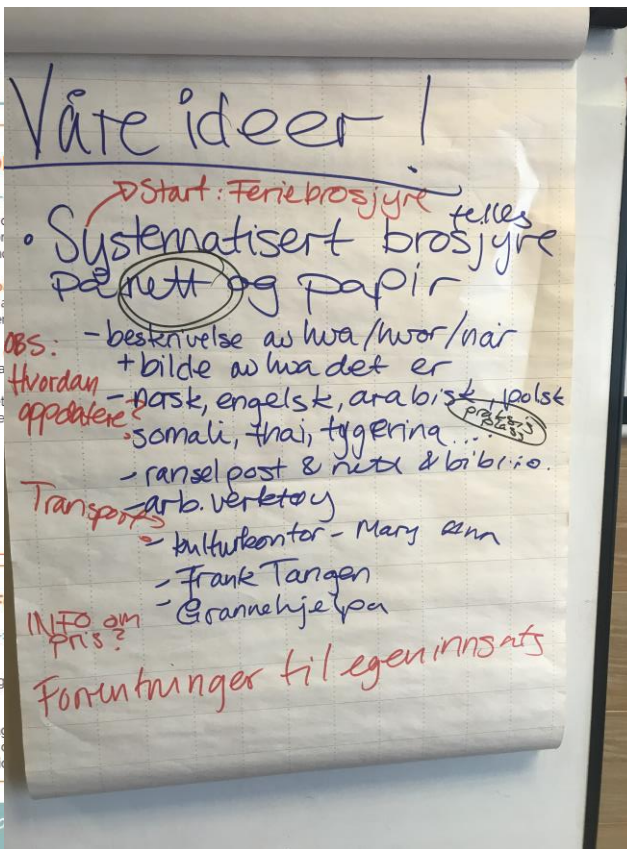 Våre ideer!
Start: Feriebrosjyre
felles
• Systematisert brosjyre
på nett og papir
- beskrivelse av hva/hvor/når
+ bilde av hva det er
OBS:
Hvordan
oppdatere?
- norsk, engelsk, arabisk, polsk
somali, thai, tygerina...
- ranselpost & nett & biblio.
Transport?
- arb. verktøy
- kulturkontor - Mary Ann
- Frank Tangen
- Grannehjelpa
INFO om
pris?
Forventninger til egeninnsats